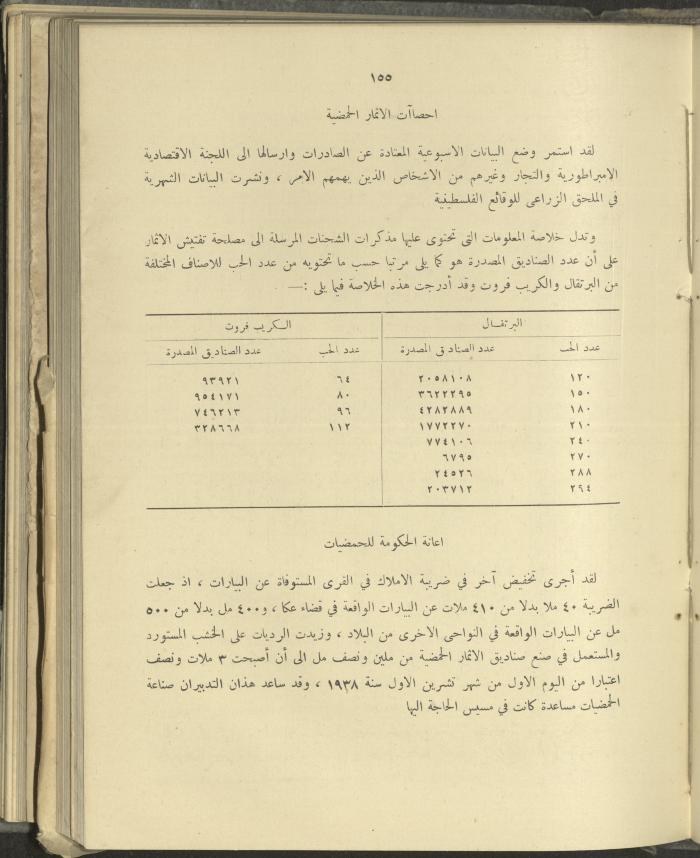 ١٥٥
احصاآت الاثمار الحمضية
لقد استمر وضع البيانات الاسبوعية المعتادة عن الصادرات وارسالها الى اللجنة الاقتصادية
الامبراطورية والتجار وغيرهم من الاشخاص الذين يهمهم الامر ، ونشرت البيانات الشهرية
في الملحق الزراعى للوقائع الفلسطينية
وتدل خلاصة المعلومات التى تحتوى عليها مذكرات الشحنات المرسلة الى مصلحة تفتيش الاثمار
على أن عدد الصناديق المصدرة هو كما يلى مرتبا حسب ما تحتويه من عدد الحب للاصناف المختلفة
من البرتقال والكريب فروت وقد أدرجت هذه الخلاصة فيما يلى :—
البرتقـال الـكريب فروت
عدد الحب عدد الصناديق المصدرة عدد الحب عدد الصناديق المصدرة
١٢٠ ٢٠٥٨١٠٨ ٦٤ ٩٣٩٢١
١٥٠ ٣٦٢٢٢٩٥ ٨٠ ٩٥٤١٧١
١٨٠ ٤٢٨٢٨٨٩ ٩٦ ٧٤٦٢١٣
٢١٠ ١٧٧٢٢٧٠ ١١٢ ٣٢٨٦٦٨
٢٤٠ ٧٧٤١٠٦
٢٧٠ ٦٧٩٥
٢٨٨ ٢٤٥٢٦
٢٩٤ ٢٠٣٧١٢
اعانة الحكومة للحمضيات
لقد أجرى تخفيض آخر في ضريبة الاملاك في القرى المستوفاة عن البيارات ، اذ جعلت
الضريبة ٤٠ ملا بدلا من ٤١٠ ملات عن البيارات الواقعة في قضاء عكا ، و٤٠٠ مل بدلا من ٥٠٠
مل عن البيارات الواقعة في النواحى الاخرى من البلاد ، وزيدت الرديات على الخشب المستورد
والمستعمل في صنع صناديق الاثمار الحمضية من ملين ونصف مل الى أن أصبحت ٣ ملات ونصف
اعتبارا من اليوم الاول من شهر تشرين الاول سنة ١٩٣٨ ، وقد ساعد هذان التدبيران صناعة
الحمضيات مساعدة كانت في مسيس الحاجة اليها